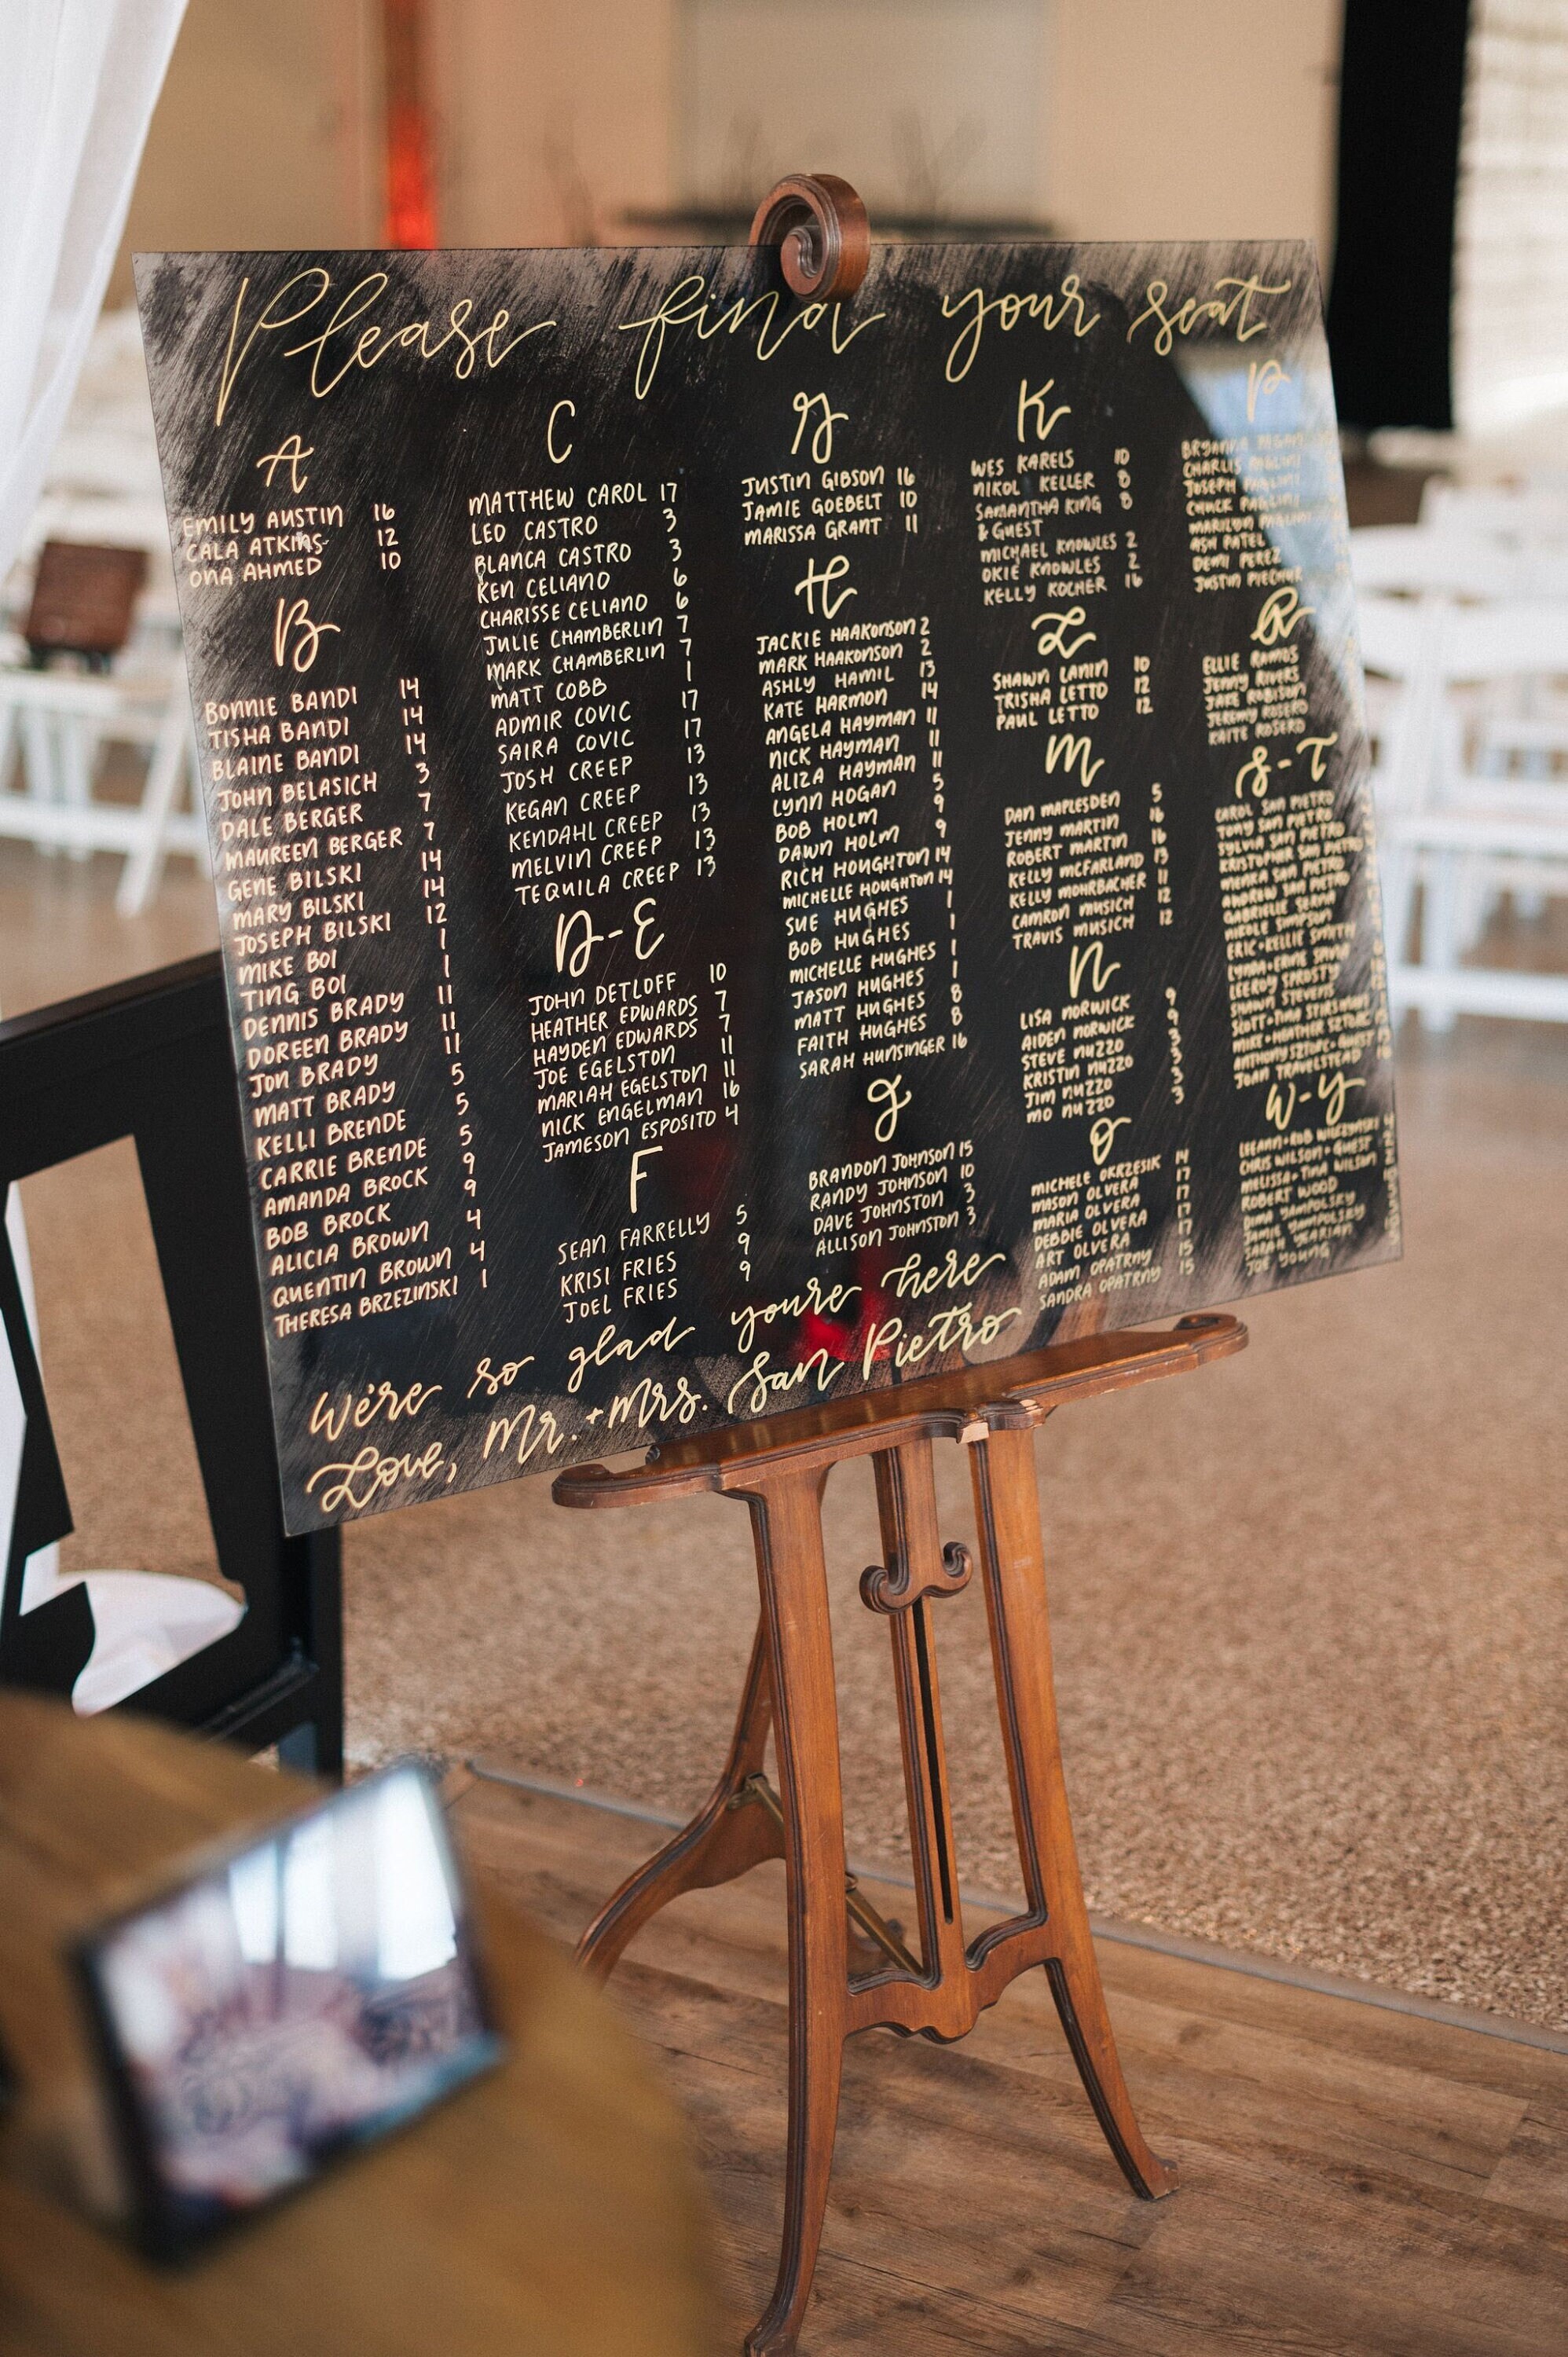 Please find your seat
A
EMILY AUSTIN 16
CALA ATKINS 12
ONA AHMED 10
B
BONNIE BANDI 14
TISHA BANDI 14
BLAINE BANDI 14
JOHN BELASICH 3
DALE BERGER 7
MAUREEN BERGER 7
GENE BILSKI 14
MARY BILSKI 14
JOSEPH BILSKI 12
MIKE BOI 1
TING BOI 1
DENNIS BRADY 11
DOREEN BRADY 11
JON BRADY 11
MATT BRADY 5
KELLI BRENDE 5
CARRIE BRENDE 5
AMANDA BROCK 9
BOB BROCK 9
ALICIA BROWN 4
QUENTIN BROWN 4
THERESA BRZEZINSKI 1
C
MATTHEW CAROL 17
LEO CASTRO 3
BLANCA CASTRO 3
KEN CELIANO 6
CHARISSE CELIANO 6
JULIE CHAMBERLIN 7
MARK CHAMBERLIN 7
MATT COBB 1
ADMIR COVIC 17
SAIRA COVIC 17
JOSH CREEP 13
KEGAN CREEP 13
KENDAHL CREEP 13
MELVIN CREEP 13
TEQUILA CREEP 13
D-E
JOHN DETLOFF 10
HEATHER EDWARDS 7
HAYDEN EDWARDS 7
JOE EGELSTON 11
MARIAH EGELSTON 11
NICK ENGELMAN 16
JAMESON ESPOSITO 4
F
SEAN FARRELLY 5
KRISI FRIES 9
JOEL FRIES 9
G
JUSTIN GIBSON 16
JAMIE GOEBELT 10
MARISSA GRANT 11
H
JACKIE HAAKONSON 2
MARK HAAKONSON 2
ASHLY HAMIL 13
KATE HARMON 14
ANGELA HAYMAN 11
NICK HAYMAN 11
ALIZA HAYMAN 11
LYNN HOGAN 5
BOB HOLM 9
DAWN HOLM 9
RICH HOUGHTON 14
MICHELLE HOUGHTON 14
SUE HUGHES 1
BOB HUGHES 1
MICHELLE HUGHES 1
JASON HUGHES 1
MATT HUGHES 8
FAITH HUGHES 8
SARAH HUNSINGER 16
J
BRANDON JOHNSON 15
RANDY JOHNSON 10
DAVE JOHNSTON 3
ALLISON JOHNSTON 3
K
WES KARELS 10
NIKOL KELLER 8
SAMANTHA KING 8
& GUEST
MICHAEL KNOWLES 2
OKIE KNOWLES 2
KELLY KOCHER 16
L
SHAWN LANIN 10
TRISHA LETTO 12
PAUL LETTO 12
M
DAN MAPLESDEN 5
JENNY MARTIN 16
ROBERT MARTIN 16
KELLY MCFARLAND 13
KELLY MOHRBACHER 11
CAMRON MUSICH 12
TRAVIS MUSICH 12
N
LISA NORWICK 9
AIDEN NORWICK 9
STEVE NUZZO 3
KRISTIN NUZZO 3
JIM NUZZO 3
MO NUZZO 3
O
MICHELE OKRZESIK 14
MASON OLVERA 17
MARIA OLVERA 17
DEBBIE OLVERA 17
ART OLVERA 17
ADAM OPATRNY 15
SANDRA OPATRNY 15
P
CHARLIS PAGLINI
JOSEPH PAGLINI
CHUCK PAGLINI
MARILYN PAGLINI
ASH PATEL
DEMI PEREZ
JUSTIN
R
ELLIE RAMOS
JENNY RIVERS
JAKE ROBISON
JEREMY ROSERO
KAITE ROSERO
S-T
CAROL SAN PIETRO
TONY SAN PIETRO
SYLVIA SAN PIETRO
KRISTOPHER SAN PIETRO
SAN PIETRO
ANDREW SAN PIETRO
GABRIELLE
NICOLE SIMPSON
ERIC + KELLIE SMITH
LEEROY SPROSTY
SHAWN STEVENS
SCOTT + TINA
MIKE + HEATHER
ANTHONY + GUEST
JOAN TRAVELSTEAD
W-Y
LEEANN + ROB
CHRIS WILSON + GUEST
MELISSA + TINA WILSON
ROBERT WOOD
DIMA YAMPOLSKY
JAMIE YAMPOLSKY
SARAH
JOE YOUNG
We're so glad youre here
Love, Mr. + Mrs. San Pietro